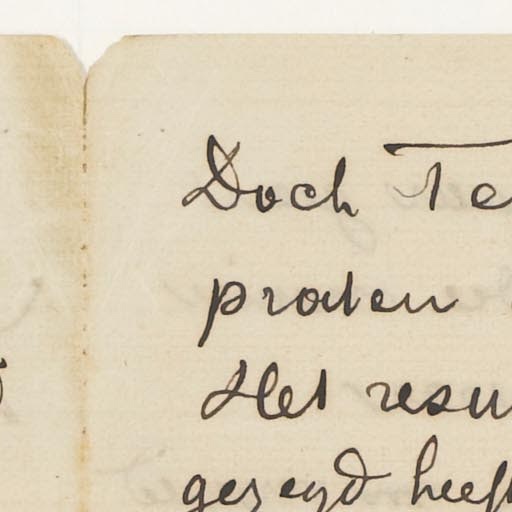 Doch Te
praten
Het resu
gezegd heeft